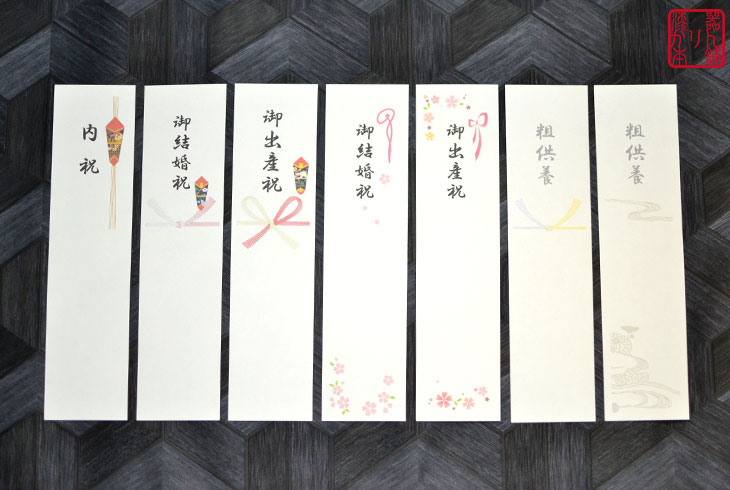 内祝
御結婚祝
御出産祝
御結婚祝
御出産祝
粗供養
粗供養